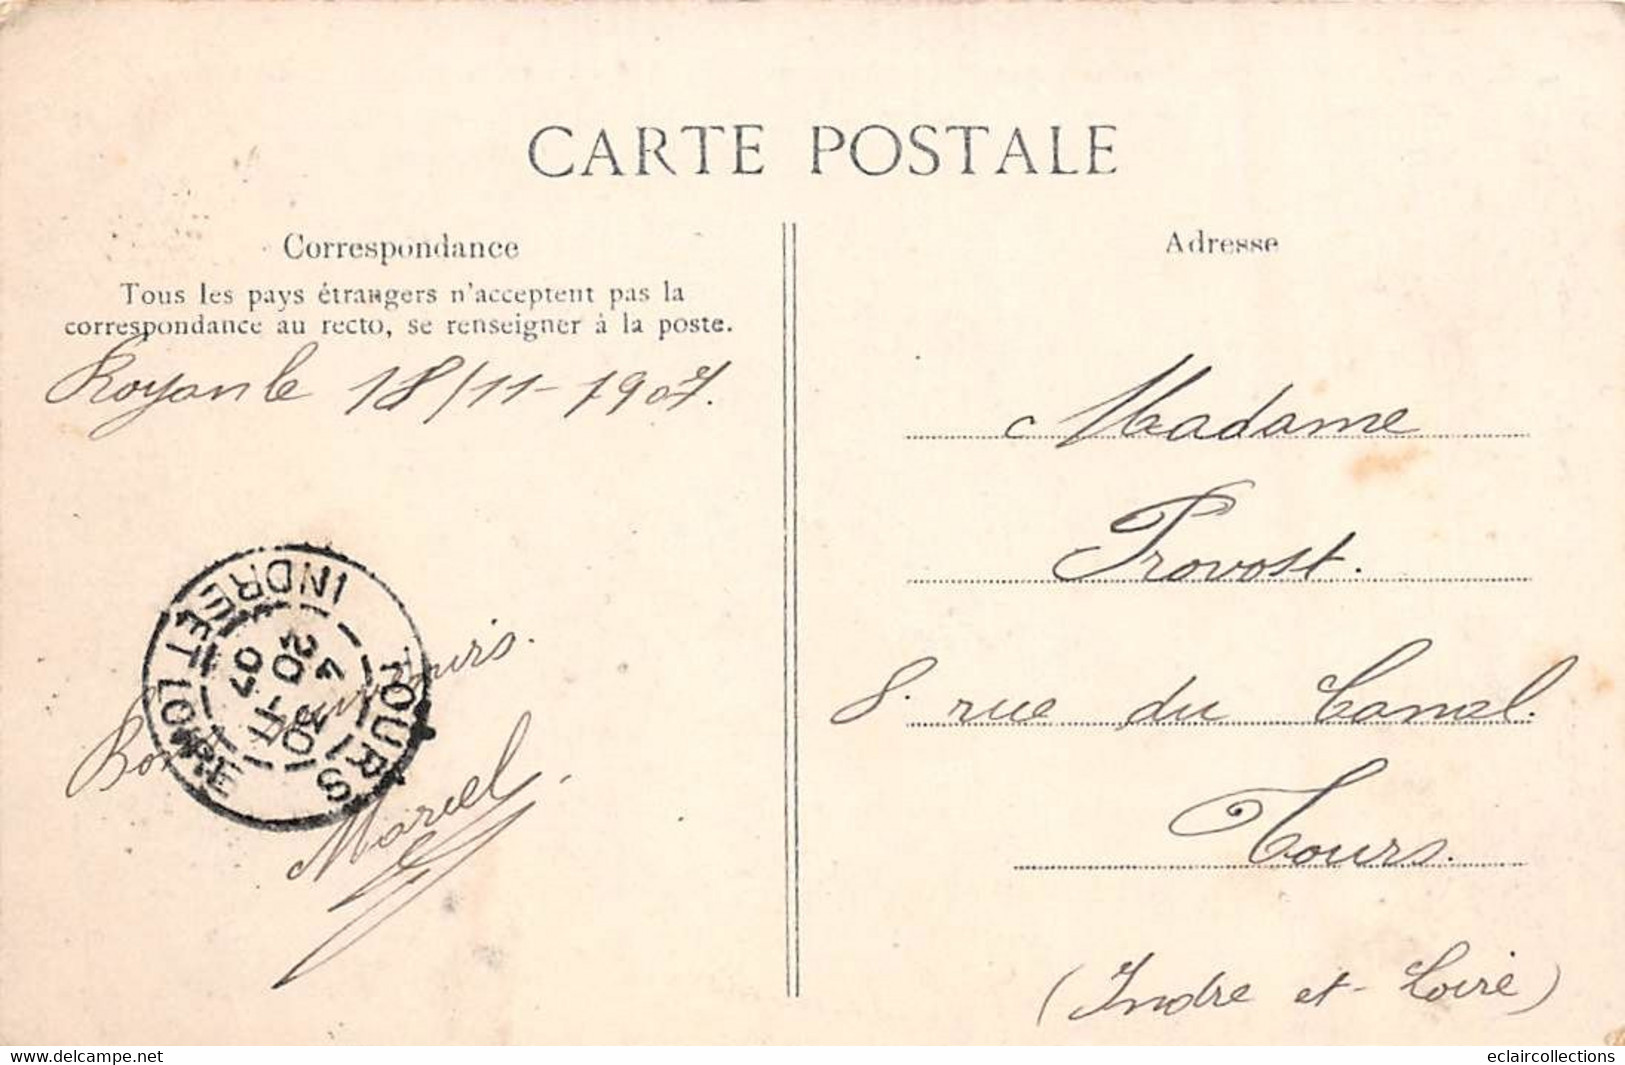 CARTE POSTALE
Correspondance
Tous les pays étrangers n'acceptent pas la
correspondance au recto, se renseigner à la poste.
Royan le 18/11-1907.
Bons souvenirs.
Marcel
TOURS
INDRE ET LOIRE
20
07
Adresse
Madame
Provost.
8. rue du Canal.
Tours.
(Indre et Loire)
www.delcampe.net
eclaircollections